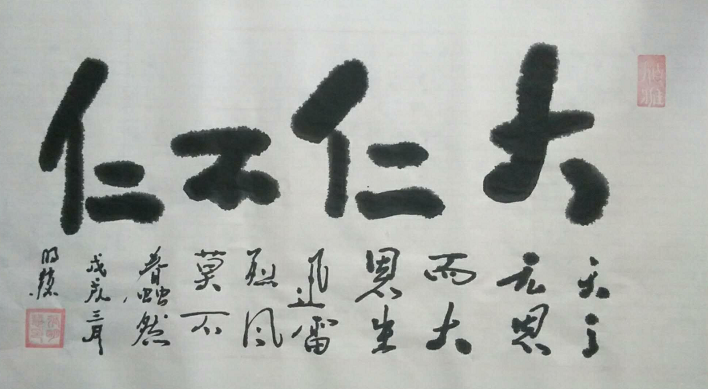 大仁不仁
天之
无恩
而大
恩生
迅雷
烈风
莫不
蠢然
戊戌三月